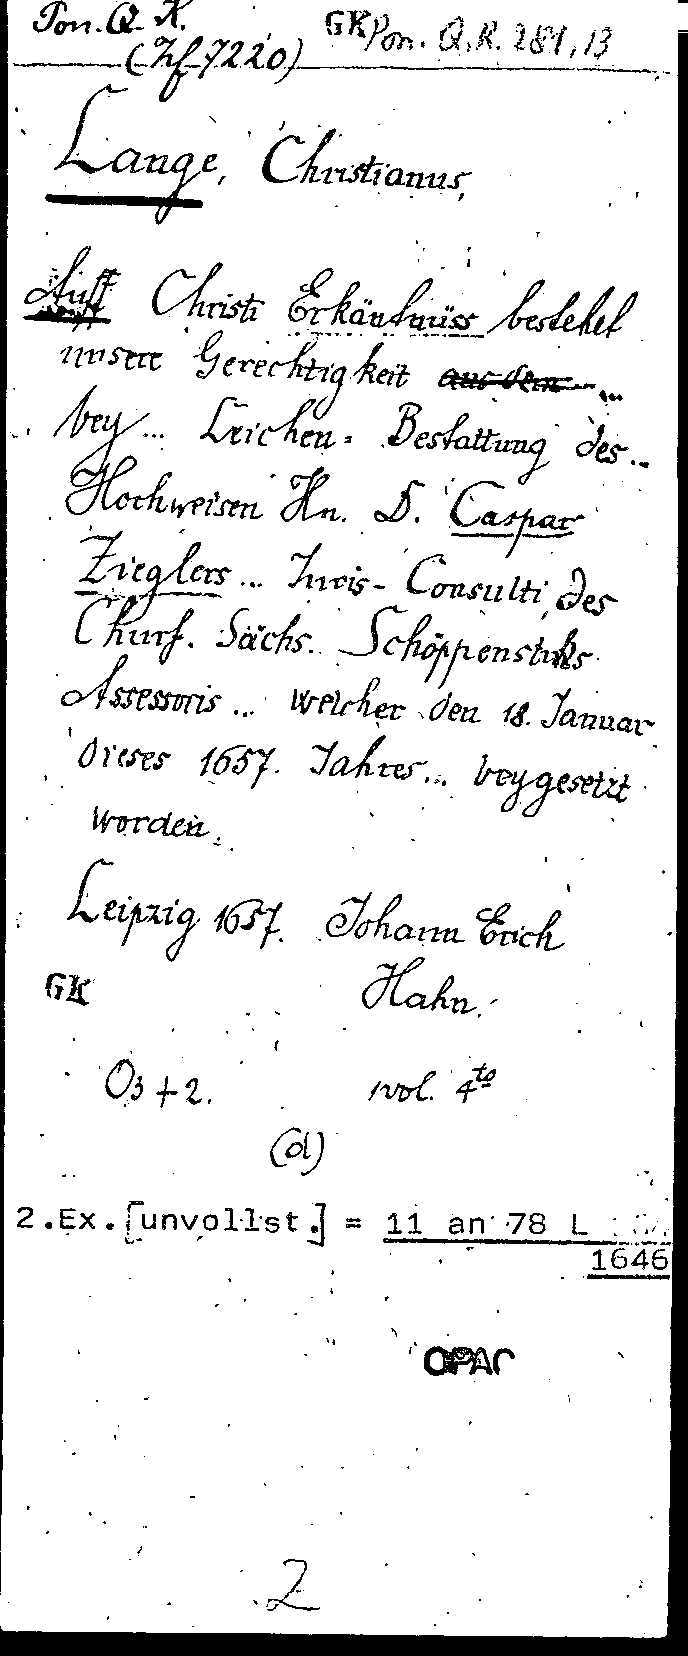 Pon. Q. K. GK Pon. Q.K. 281,13
(Zf 7220)
Lange, Christianus,
Auff Christi Erkäntnüss bestehet
unsere Gerechtigkeit ...
bey ... Leichen-Bestattung des ...
Hochweisen Hn. D. Caspar
Zieglers ... Juris-Consulti, des
Churf. Sächs. Schöppenstuhls
Assessoris ... welcher den 18. Januar
dieses 1657. Jahres ... beygesetzt
worden.
Leipzig 1657. Johann Erich
GK Hahn.
1 vol. 4to
(d)
2.Ex.[unvollst.] = 11 an 78 L
1646
OPAC
2